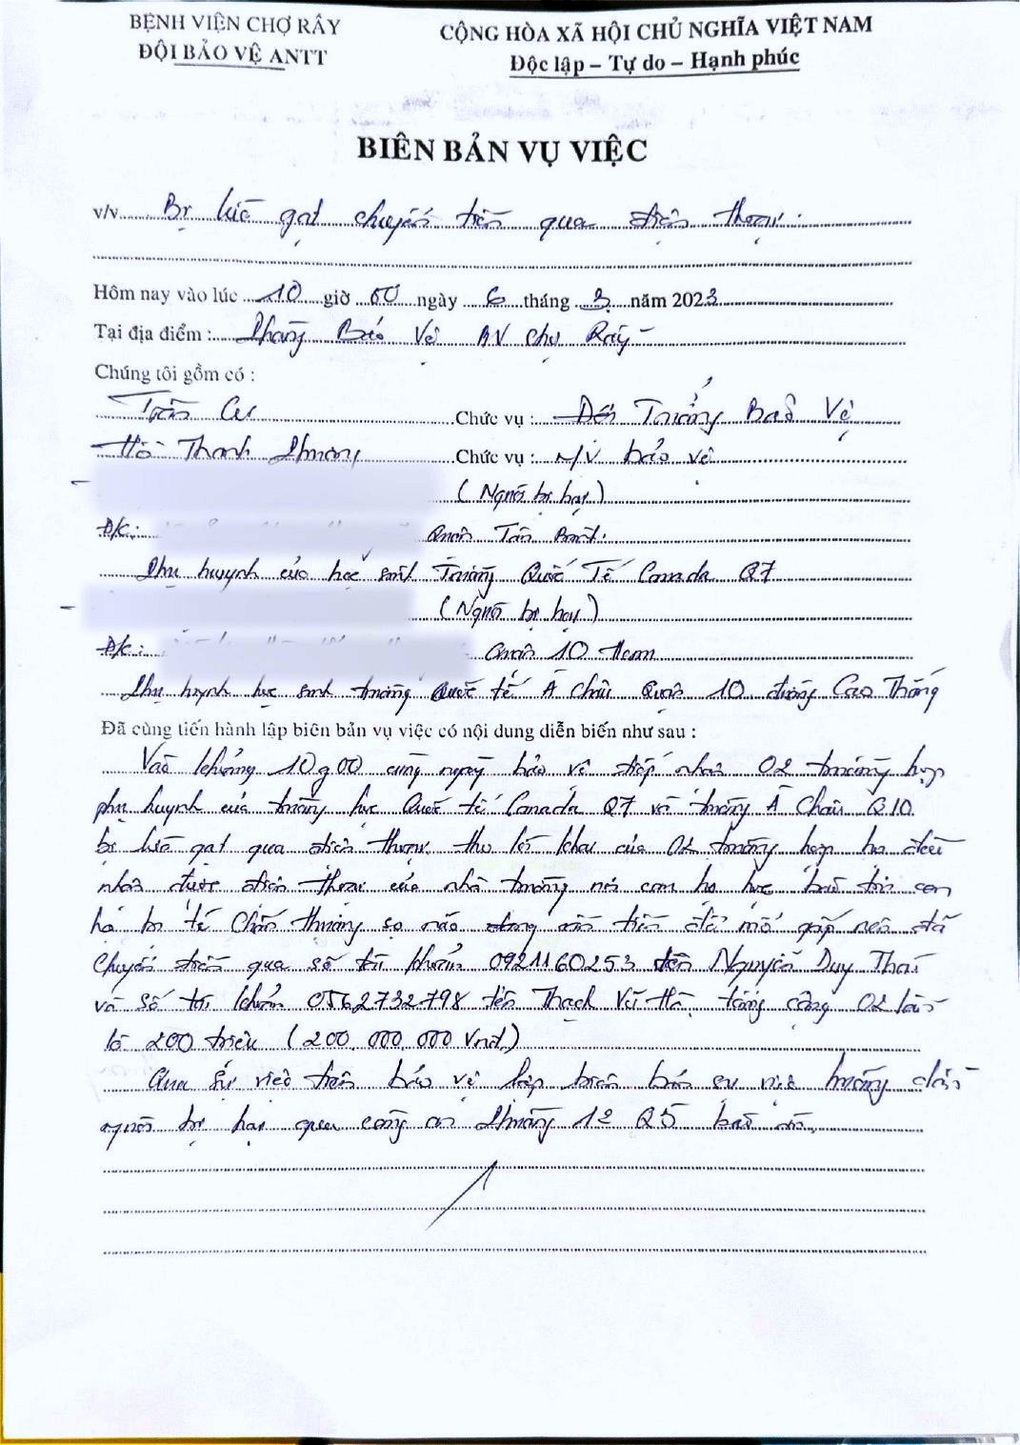 BỆNH VIỆN CHỢ RẪY
ĐỘI BẢO VỆ ANTT
CỘNG HÒA XÃ HỘI CHỦ NGHĨA VIỆT NAM
Độc lập – Tự do – Hạnh phúc
BIÊN BẢN VỤ VIỆC
v/v Bị lừa gạt chuyển tiền qua điện thoại.
Hôm nay vào lúc 10 giờ 00 ngày 6 tháng 3 năm 2023
Tại địa điểm : Phòng Bảo Vệ BV Chợ Rẫy
Chúng tôi gồm có :
Trần Cư Chức vụ : Đội Trưởng Bảo Vệ
Hồ Thanh Phương Chức vụ : N/V bảo vệ
(Người bị hại)
Đ/C: Quận Tân Bình.
Phụ huynh của học sinh Trường Quốc Tế Canada Q7
(Người bị hại)
Đ/C: Quận 10 Hcm
Phụ huynh học sinh trường Quốc tế Á Châu Quận 10 đường Cao Thắng
Đã cùng tiến hành lập biên bản vụ việc có nội dung diễn biến như sau :
Vào khoảng 10g00 cùng ngày bảo vệ tiếp nhận 02 trường hợp
phụ huynh của trường học Quốc tế Canada Q7 và trường Á Châu Q10.
bị lừa gạt qua điện thoại theo lời khai của 02 trường hợp họ đều
nhận được điện thoại của nhà trường nói con họ học báo tin con
họ bị té Chấn thương sọ não đang cần tiền để mổ gấp nên đã
Chuyển tiền qua số tài khoản 0921160253 tên Nguyễn Duy Thái
và số tài khoản 0562732798 tên Thạch Vũ Hà tổng cộng 02 lần
là 200 triệu (200.000.000 Vnđ)
Qua sự việc trên bảo vệ lập biên bản sự việc hướng dẫn
người bị hại qua công an Phường 12 Q5 báo án.